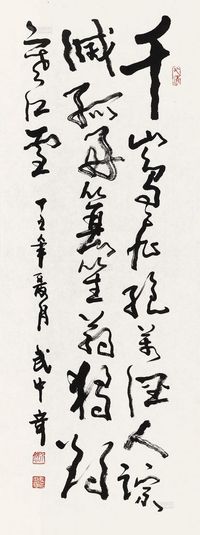 千山鸟飞绝万径人踪
灭孤舟蓑笠翁独钓
寒江雪
年夏月武中奇